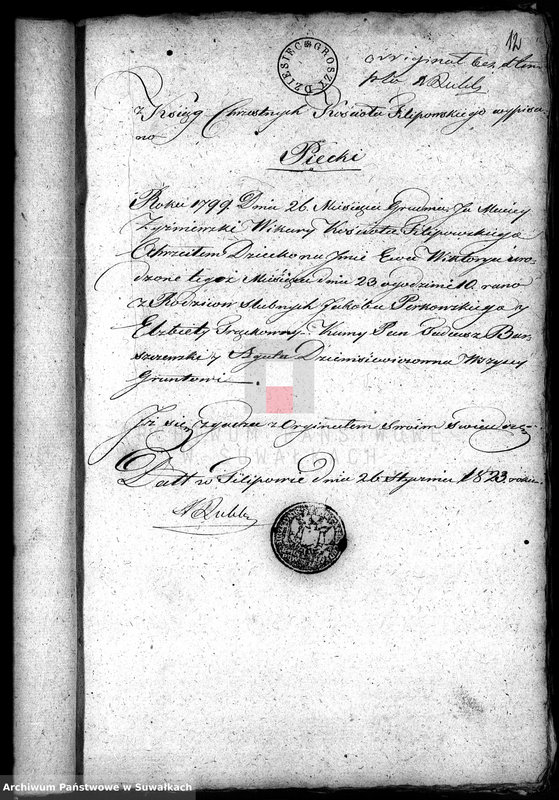 12
DZIESIĘC GROSZY
orriginał bez
pła A Rubb
z Ksiąg Chrzestnych Kościoła Filipowskiego wypisa
no
Piecki
Roku 1799 Dnia 26 Miesiąca Grudnia Ja Maciey
Zyzniewski Wikary Kościoła Filipowskiego
Ochrzciłem Dziecko na Imie Ewa Wiktorya uro
dzone tegoż Miesiąca dnia 23 o godzinie 10 rano
z Rodzicow slubnych Jakoba Perkowskiego y
Elzbiety Kumy Pan Tadeusz Bar
szczewski y Agata Wszyscy
Gruntowi.
Iż się zgadza z Orginałem swoim
ARCHIWUM PAŃSTWOWE
W SUWAŁKACH
Datt w Filipowie dnia 26 Stycznia 1823 roku
A Rubb
Archiwum Państwowe w Suwałkach